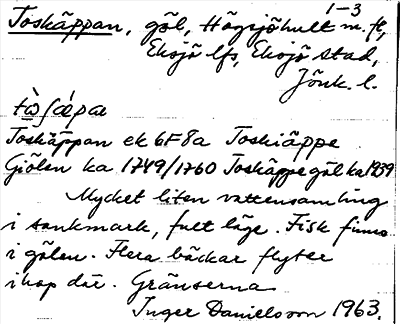 Toskäppan, göl, Högsjöhult 1-3 m.fl,
Eksjö lfs, Eksjö stad,
Jönk. l.
tòʃæ̀pa
Toskäppan ek 6F8a Toskiäppe
Giölen ka 1749/1760 Toskäppegöl ka 1939
Mycket liten vattensamling
i sankmark, fult läge. Fisk finns
i gölen. Flera bäckar flyter
ihop där. Gränserna
Inger Danielsson 1963.